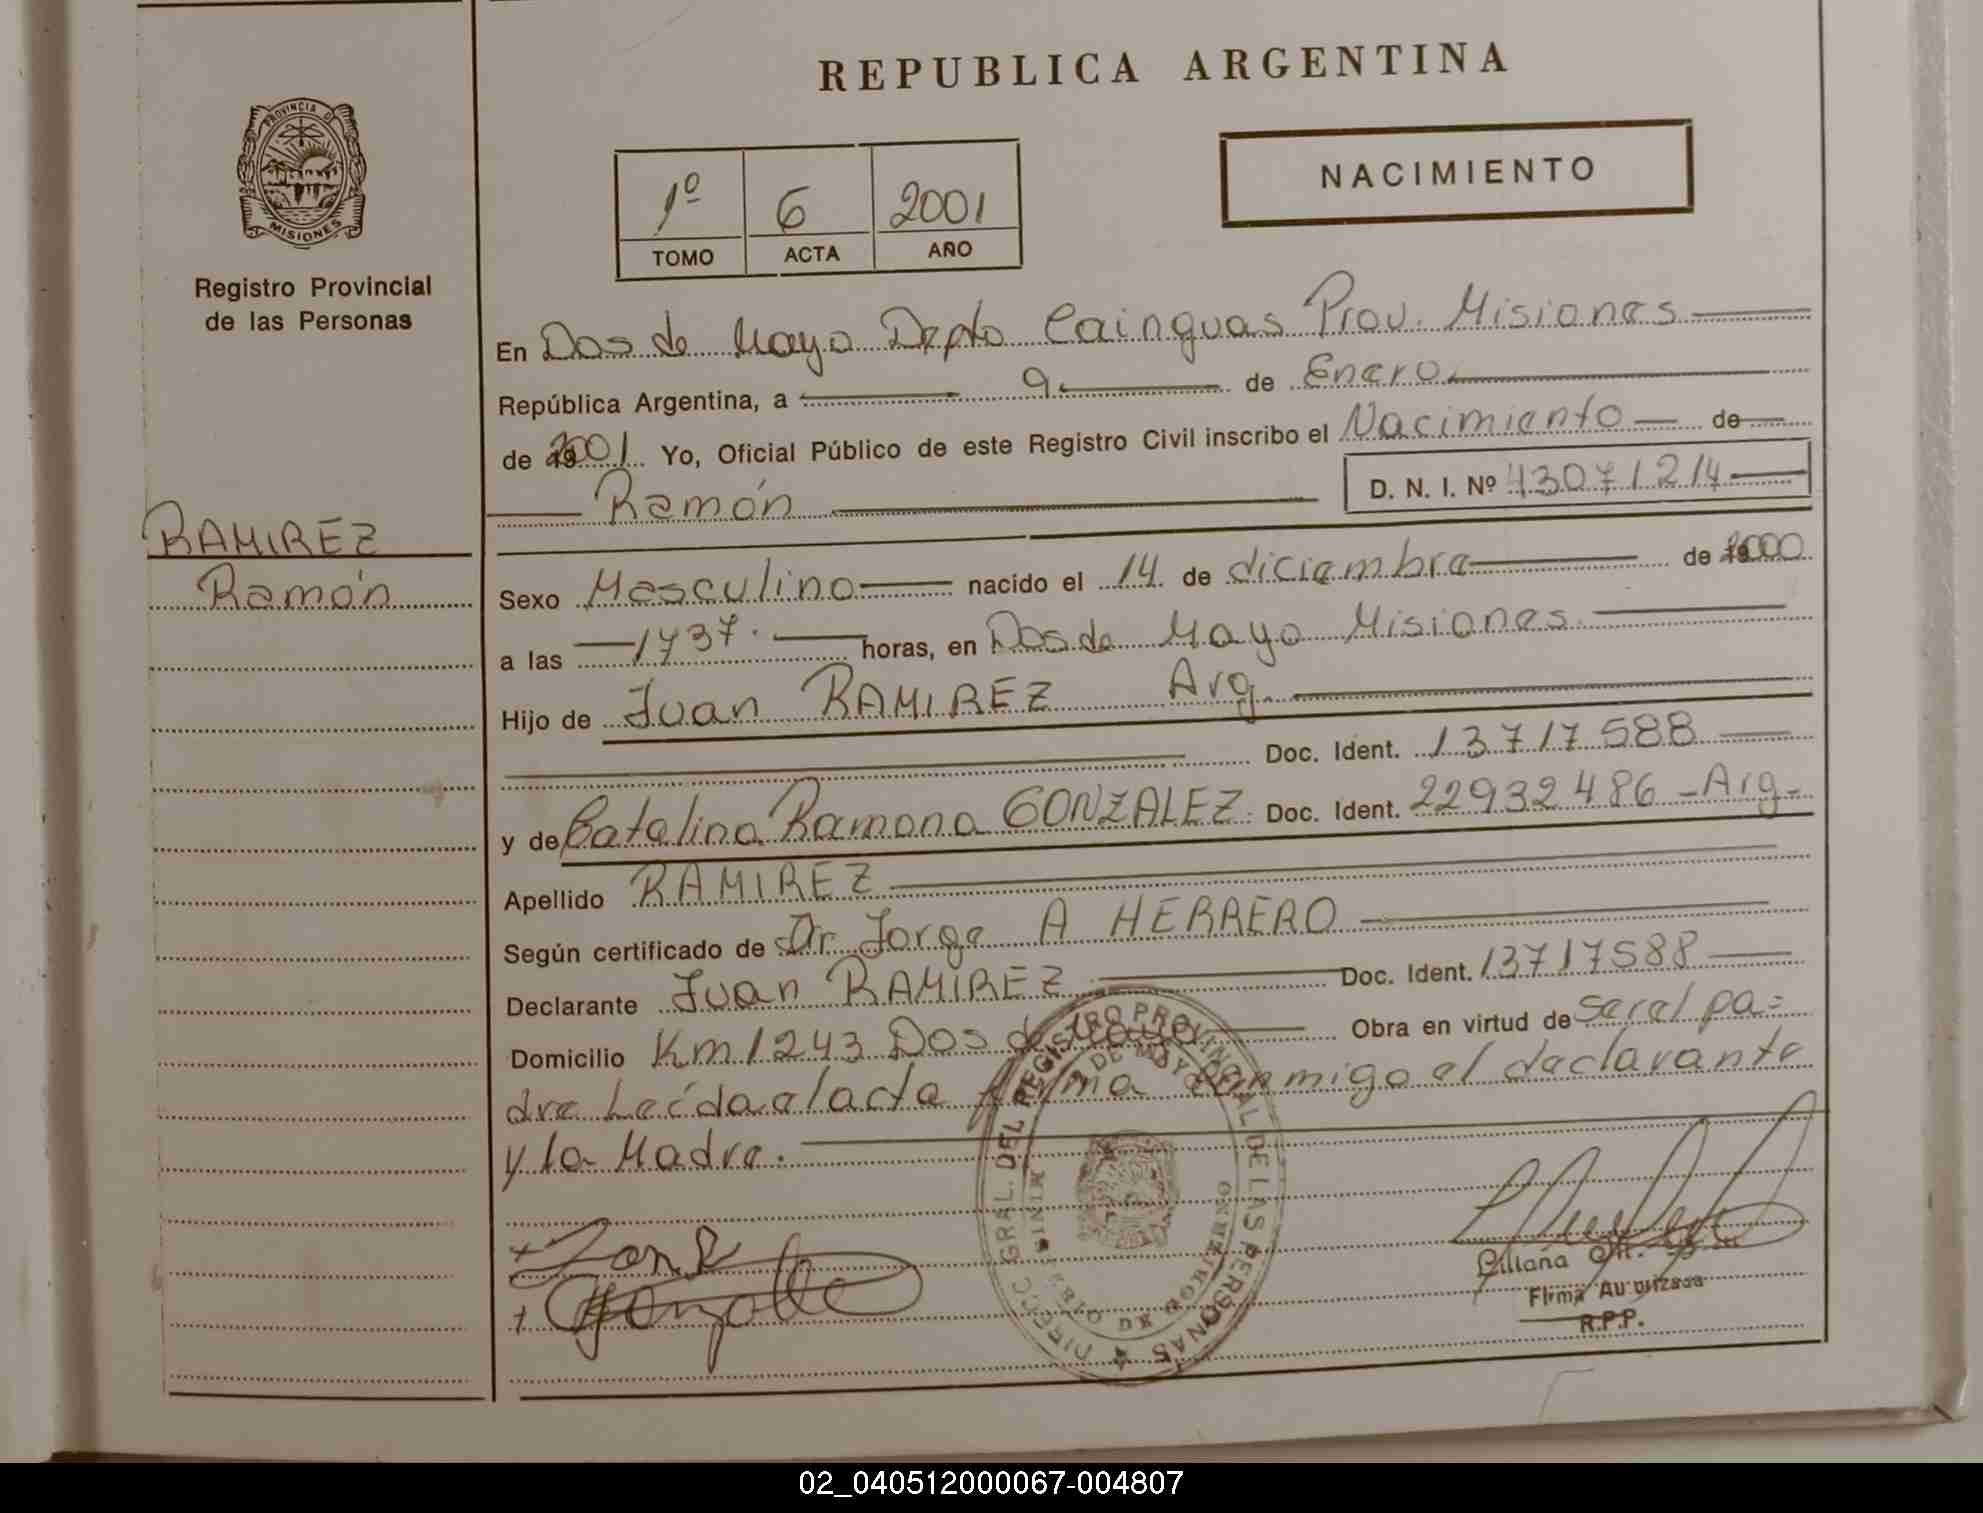 REPUBLICA ARGENTINA
PROVINCIA D
MISIONES
Registro Provincial
de las Personas
1º 6 2001
TOMO ACTA AÑO
NACIMIENTO
En Dos de Mayo Depto Cainguas Prov. Misiones
República Argentina, a 9 de Enero
de 2001 Yo, Oficial Público de este Registro Civil inscribo el Nacimiento de
Ramón D. N. I. Nº 43071214
RAMIREZ
Ramón
Sexo Masculino nacido el 14 de diciembre de 2000
a las 1737 horas, en Dos de Mayo Misiones
Hijo de Juan RAMIREZ Arg.
Doc. Ident. 13717588
y de Catalina Ramona GONZALEZ Doc. Ident. 22932486 - Arg -
Apellido RAMIREZ
Según certificado de Dr. Jorge A HERRERO
Declarante Juan RAMIREZ Doc. Ident. 13717588
Domicilio Km 1243 Dos de Mayo Obra en virtud de ser el pa=
dre Leída el acta firma conmigo el declarante
y la Madre.
DIRECC. GRAL. DEL REGISTRO PROVINCIAL DE LAS PERSONAS
2 DE MAYO
MINISTERIO DE GOBIERNO
Liliana
Firma Autorizada
R.P.P.
02_040512000067-004807